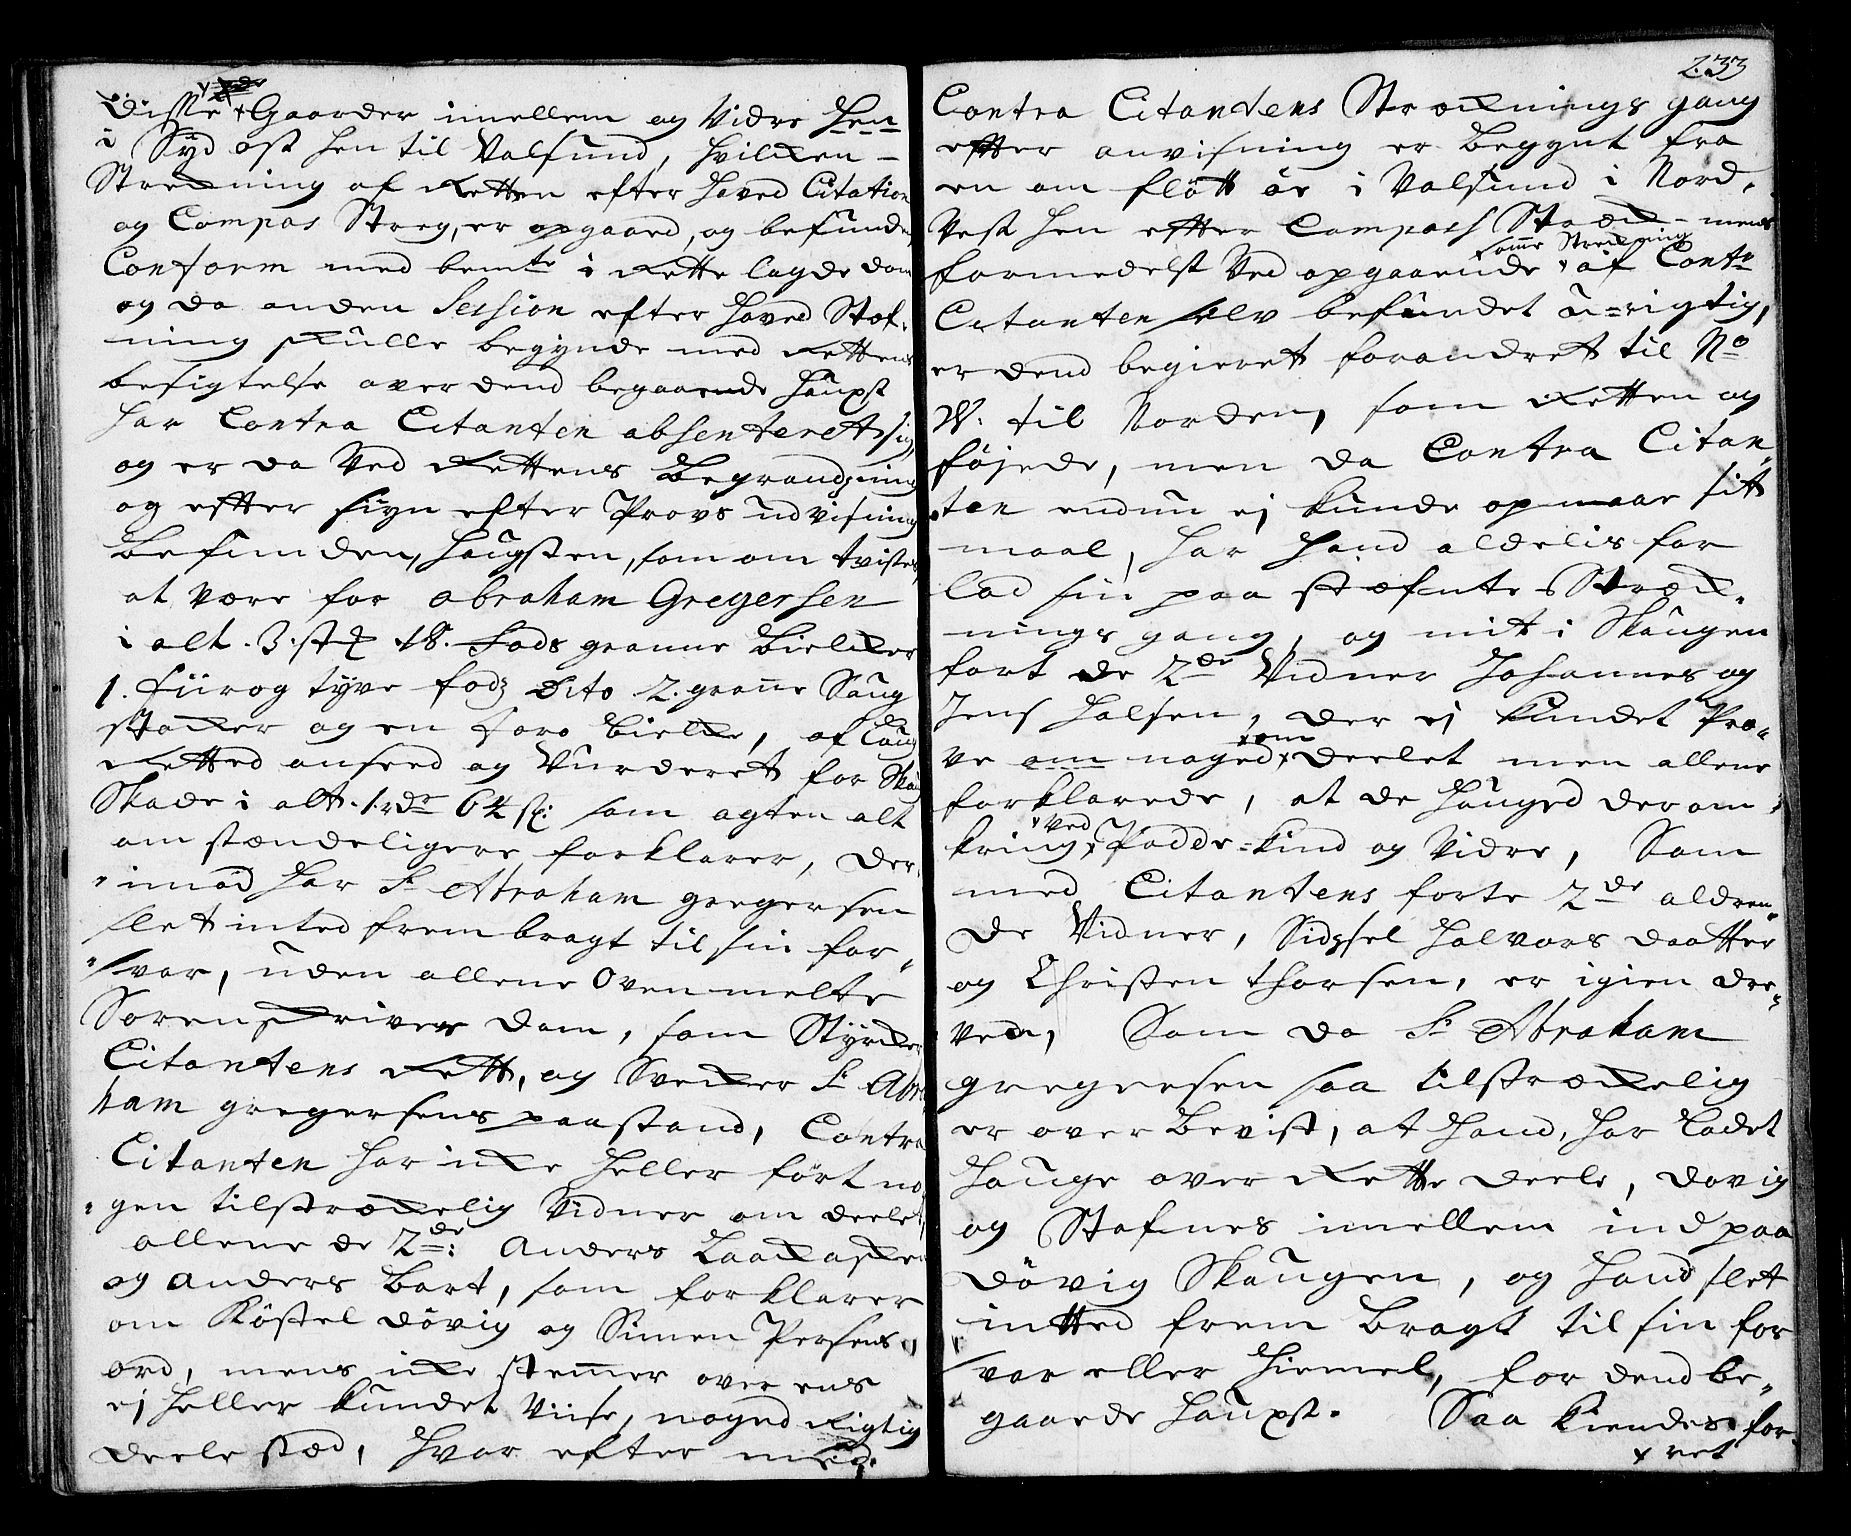 Disse Gaarder imellem og Vidre hen
i Syd ost hen til Valsund, hvilken
Strekning af Retten efter hoved Citation
og Compas Streg, er opgaaed, og befunden
Conform med bemte i Rette lagde dom
og da anden Session efter hoved Stef-
ning skulle begynde med Rettens
besigtelse over dend begaaende haugst
har Contra Citanten absenteret sig,
og er da Ved Rettens Begrandsning
og effter siyn efter Provs udvisning
Befunden, haugsten, som om tvistes,
at være for Abraham Gregersen
i alt. 3. st 18. Fods granne Bielker
1. Fiirog tyve fods Dito 2. granne Saug
stoker og en foro Bielke, af laug
Retted anseed og Vurderet for Skoug
Skade i alt. 1. rdr 64 sk: som agten alt
om stændeligere forklarer, der-
imod har Sr Abraham gregersen
slet inted frembragt til sin for-
svar, uden allene Ovenmelte
Sorenskrivers dom, som Styrker
Citantens Rett, og Svecker Sr Abra
ham gregersens paastand, Contra
Citanten har icke heller fört no-
gen tilstrækkelig Vidner om deelet,
allene de 2de: Anders
og Anders Bart, som forklarer
om Köstel Dövig og Simen Persens
ord, mens icke stemmer over ens
ej heller kundet Viise, noged Rigtig
deele stæd, hvor efter med
233
Contra Citantens Strecknings gang
effter anvisning er begynt fra
en om flött ör i Valsund i Nord.
Vest hen effter Compass Stræk- mens
samme Streckning
formedelst Ved opgaaende af Contr
Citanten selv befundet u-rigtig,
er dend begieret forandret til No
W. til Norden, som Retten og
föjede, men da Contra Citan-
ten endnu ej kunde opnaae sitt
maal, har hand aldelis for
lad sin paa stefnte Stræk-
nings gang, og mitt i Skaugen
fort de 2de Vidner Johannes og
Jens Halsen, der ej kundet Pro-
som
ve om noged deelet men allene
forklarede, at de hauged der om-
Ved
kring, Padde-kind og Vidre, Som
med Citantens forte 2de aldren-
de Vidner, Sidsel Halvors daatter
og Christen Thorsen, er igien dre-
Ven, Som da Sr Abraham
gregersen saa tilstrækkelig
er over Bevist, at hand, har ladet
hauge over Rette deele, Dövig
og Stafnes imellem ind paa
Dövig Skaugen, og hand slet
intted frem Bragt til sin for
svar eller Hiemel, for dend be-
gaaede haugst. Saa kiendes for
ret